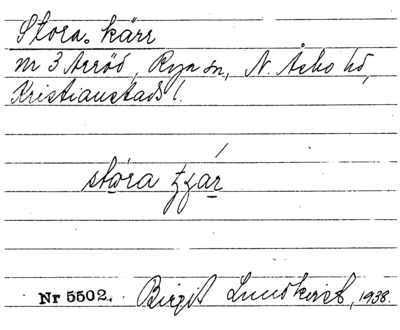 Stora kärr
nr 3 Arröd, Rya sn, N. Åsbo hd,
Kristianstads l.
stora
Nr 5502. Birgit Lundkvist, 1938.